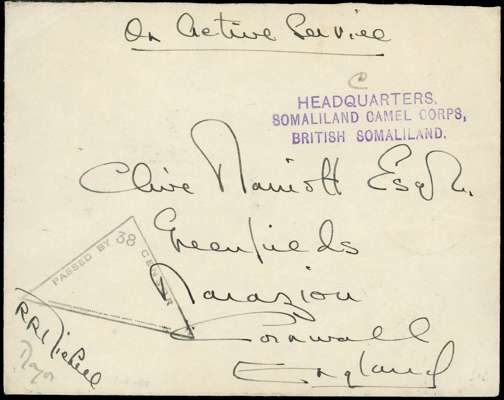 On Active Service
C
HEADQUARTERS,
SOMALILAND CAMEL CORPS,
BRITISH SOMALILAND.
Clive Marriott Esqre.
Greenfields
Marazion
Cornwall
England
PASSED BY 38 CENSOR
Major